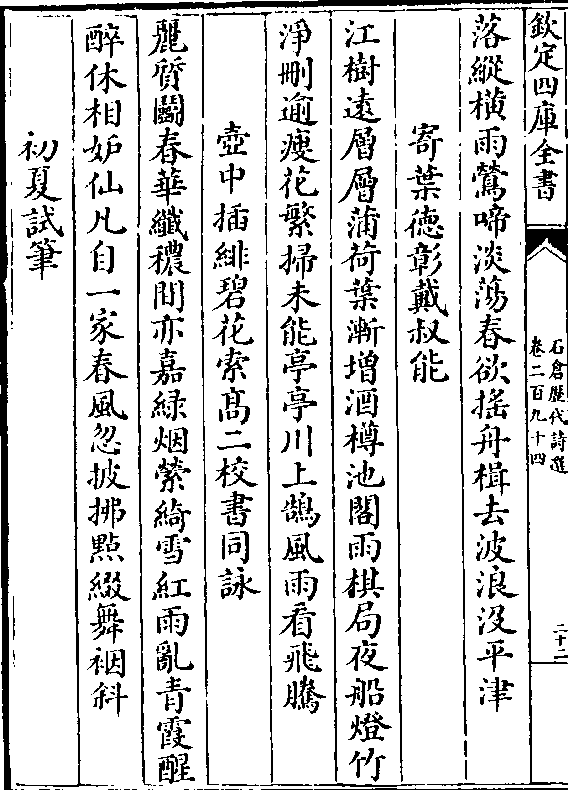 欽定四庫全書
石倉歷代詩選
卷二百九十四
二十二
落縱橫雨鶯啼淡蕩春欲搖舟楫去波浪沒平津
寄葉德彰戴叔能
江樹遠層層蒲荷葉漸增酒樽池閣雨棋局夜船燈竹
淨刪逾瘦花繁掃未能亭亭川上鵠風雨看飛騰
壺中插緋碧花索髙二校書同詠
麗質鬭春華纖穠間亦嘉緑烟縈綺雪紅雨亂青霞醒
醉休相妒仙凡自一家春風忽披拂㸃綴舞裀斜
初夏試筆